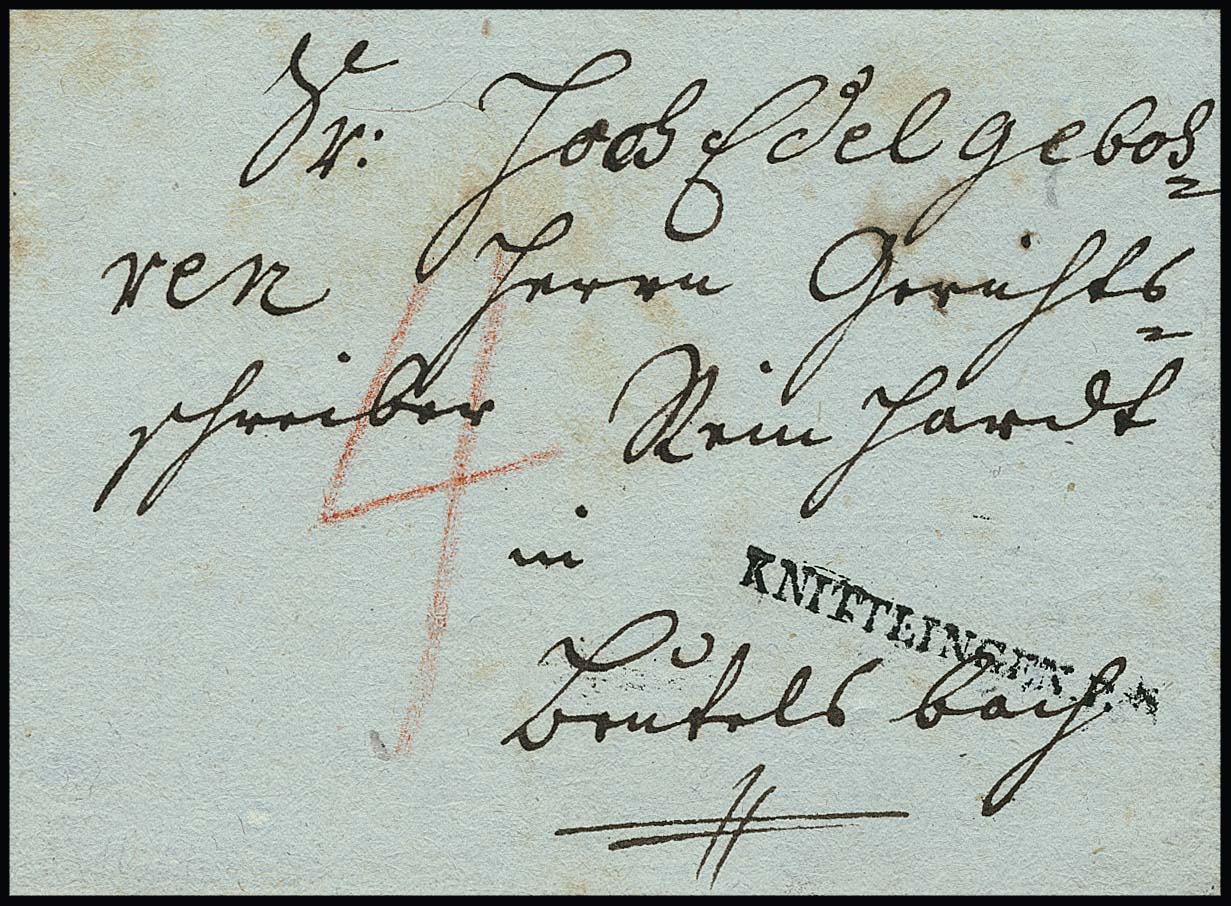 Sr: HochEdelgeboh=
ren Herrn Gerichts=
schreiber Reinhardt
4
in
KNITTLINGEN
Beutelsbach.